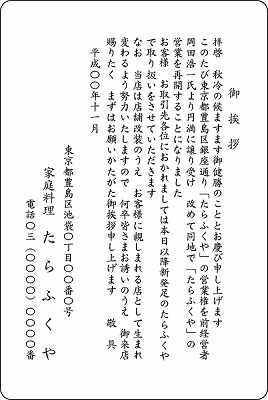 御挨拶
拝啓 秋冷の候ますます御健勝のこととお慶び申し上げます
このたび東京都豊島区銀座通り「たらふくや」の営業権を前経営者
岡田浩一氏より円満に譲り受け 改めて同地で「たらふくや」の
営業を再開することになりました
お客様 お取引先各位におかれましては本日以降新発足のたらふくや
で取り扱いをさせていただきます
なお 当店は店舗改装のうえ お客様に親しまれる店として生まれ
変わるよう努力いたしますので 何卒皆さまお誘いのうえ 御来店
賜りたく まずはお願いかたがた御挨拶申し上げます 敬具
平成〇〇年十一月
東京都豊島区池袋〇丁目〇〇番〇号
家庭料理 たらふくや
電話〇三(〇〇〇〇)〇〇〇〇番